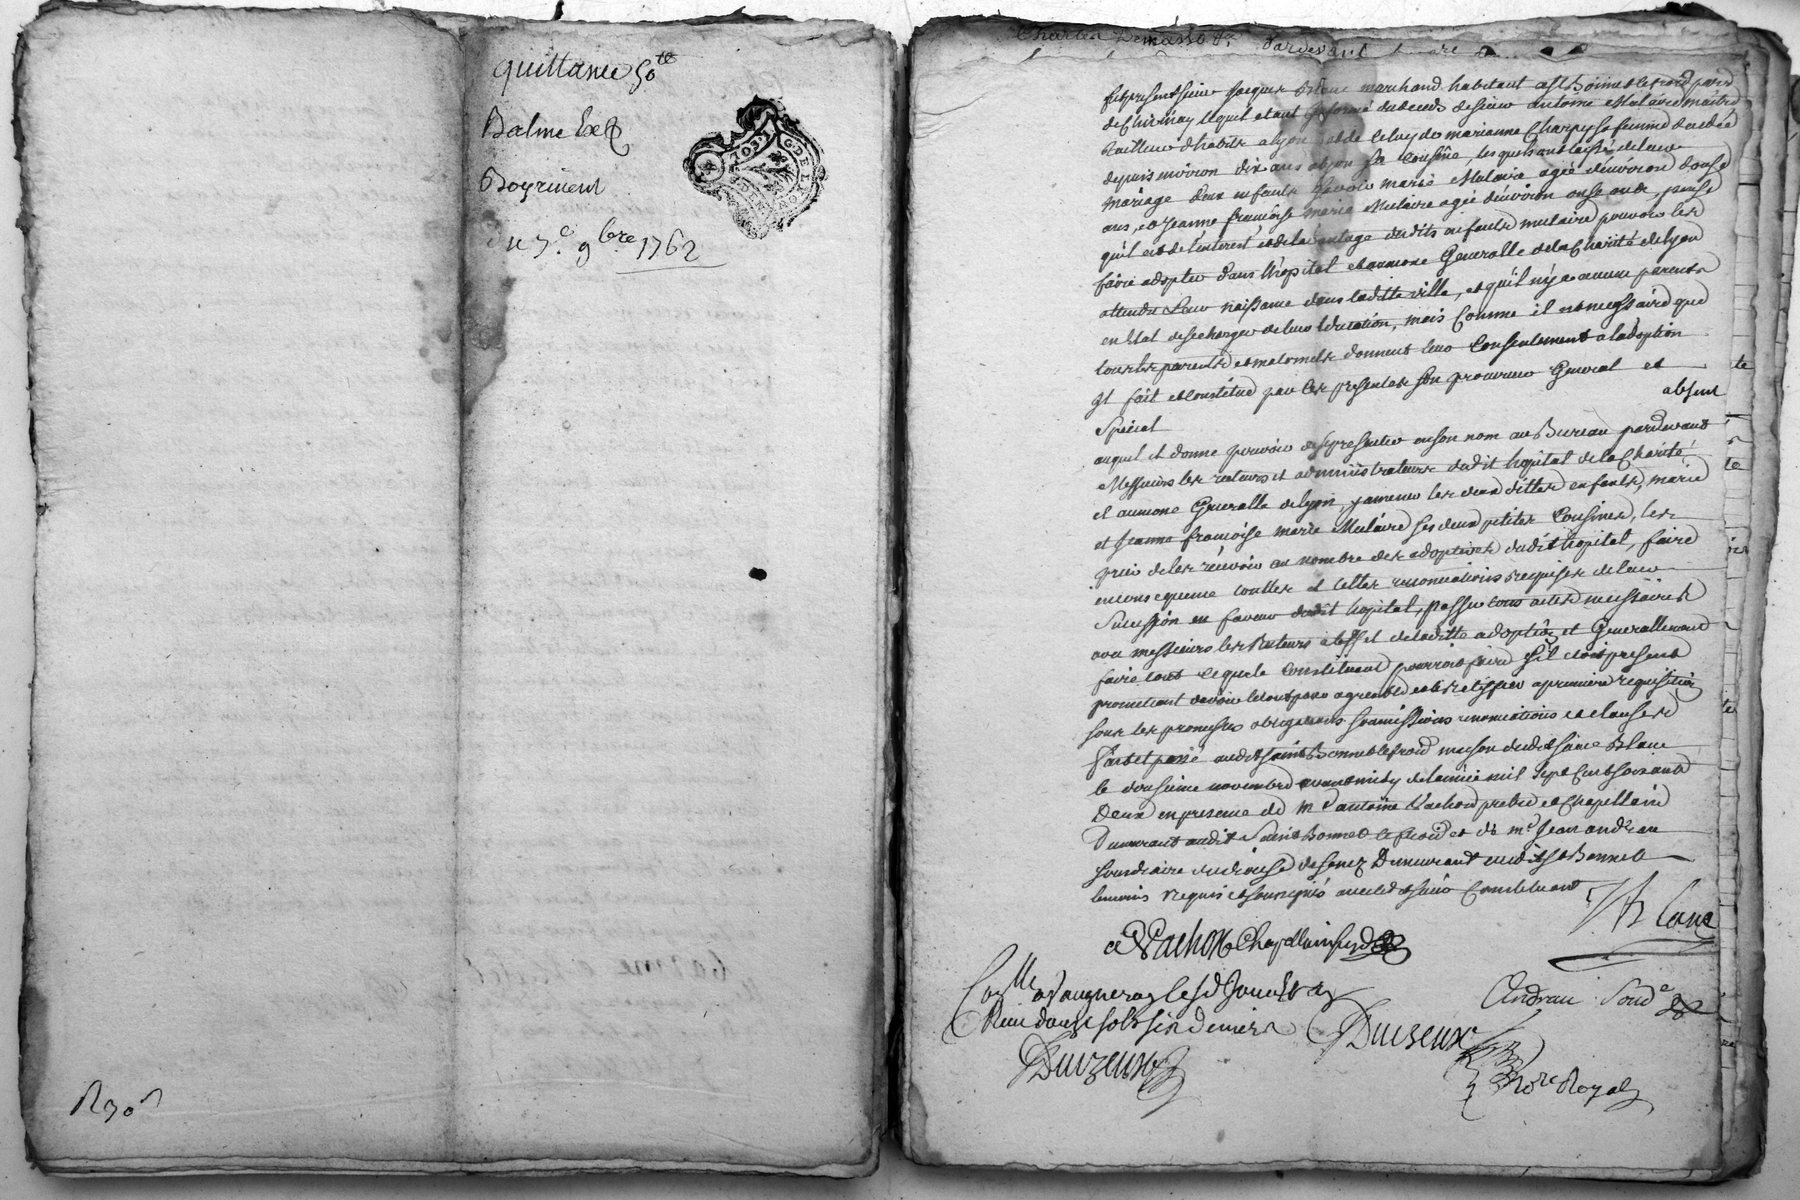 quittance 50 tt
Balme &
Boyriuent
du 7e. 9bre 1762
GDE LYON
R 30s
pardevant
fut present sieur Jacques Blanc marchand habitant a St Bonnet le froid paroisse
de Chevinay lequel etant informé du deceds de sieur antoine Mulaire maitre
tailleur d'habits a lyon et de celuy de marianne Charpy sa femme decedée
depuis environ dix ans a lyon sa Cousine, lesquels ont laissé de leur
mariage deux enfants scavoir marie Mulaire agée d'environ douse
ans, et Jeanne françoise marie Mulaire agée d'environ onse ans, pensé
qu'il est de l'interest et de l'avantage desdits enfants mulaire pouvoir les
faire adopter dans l'hopital et aumone Generalle de la Charité de lyon
attendu Leur naissance dans laditte ville, et qu'il n'y a aucuns parents
en Etat de se charger de leur Education, mais Comme il est necessaire que
tous les parents et maternels donnent leur Consentement a l'adoption
Il fait et constitue par les presentes son procureur General et
Special absent
auquel il donne pouvoir de se presenter en son nom au Bureau pardevant
Messieurs les recteurs et administrateurs dudit hopital de la Charité
et aumone Generalle de lyon, y amener les deux dittes enfants, marie
et Jeanne françoise marie Mulaire ses deux petites Cousines, les
prier de les recevoir au nombre des adoptives dudit hopital, faire
en consequence touttes et telles renonciations requises de leur
Succession en faveur dudit hopital, passer tous actes necessaires
avec messieurs les Recteurs a l'effet de laditte adoption et Generallement
faire tout ce que le Constituant pourroit faire s'il etoit present
promettant d'avoir le tout pour agreable et le ratiffier a premiere requisition
sous les promesses obligations soumissions renonciations et clauses
fait et passé audit saint Bonnet le froid maison dudit sieur Blanc
le dousieme novembre avant midy de l'année mil sept Cent soixante
Deux en presence de Mre antoine Vachon pretre et Chapellain
Demeurant audit Saint Bonnet le froid et de Mre Jean andreau
soudiaire du diocese de senez Demeurant audit St Bonnet
temoins requis et soussignés avec ledit sieur Constituant
J Blanc
a Vachon Chapellain
Andrau Soudre
Collé a Vaugneray le
Reçu douse sols six deniers
Duizeux
Duizeux
Nore Royal